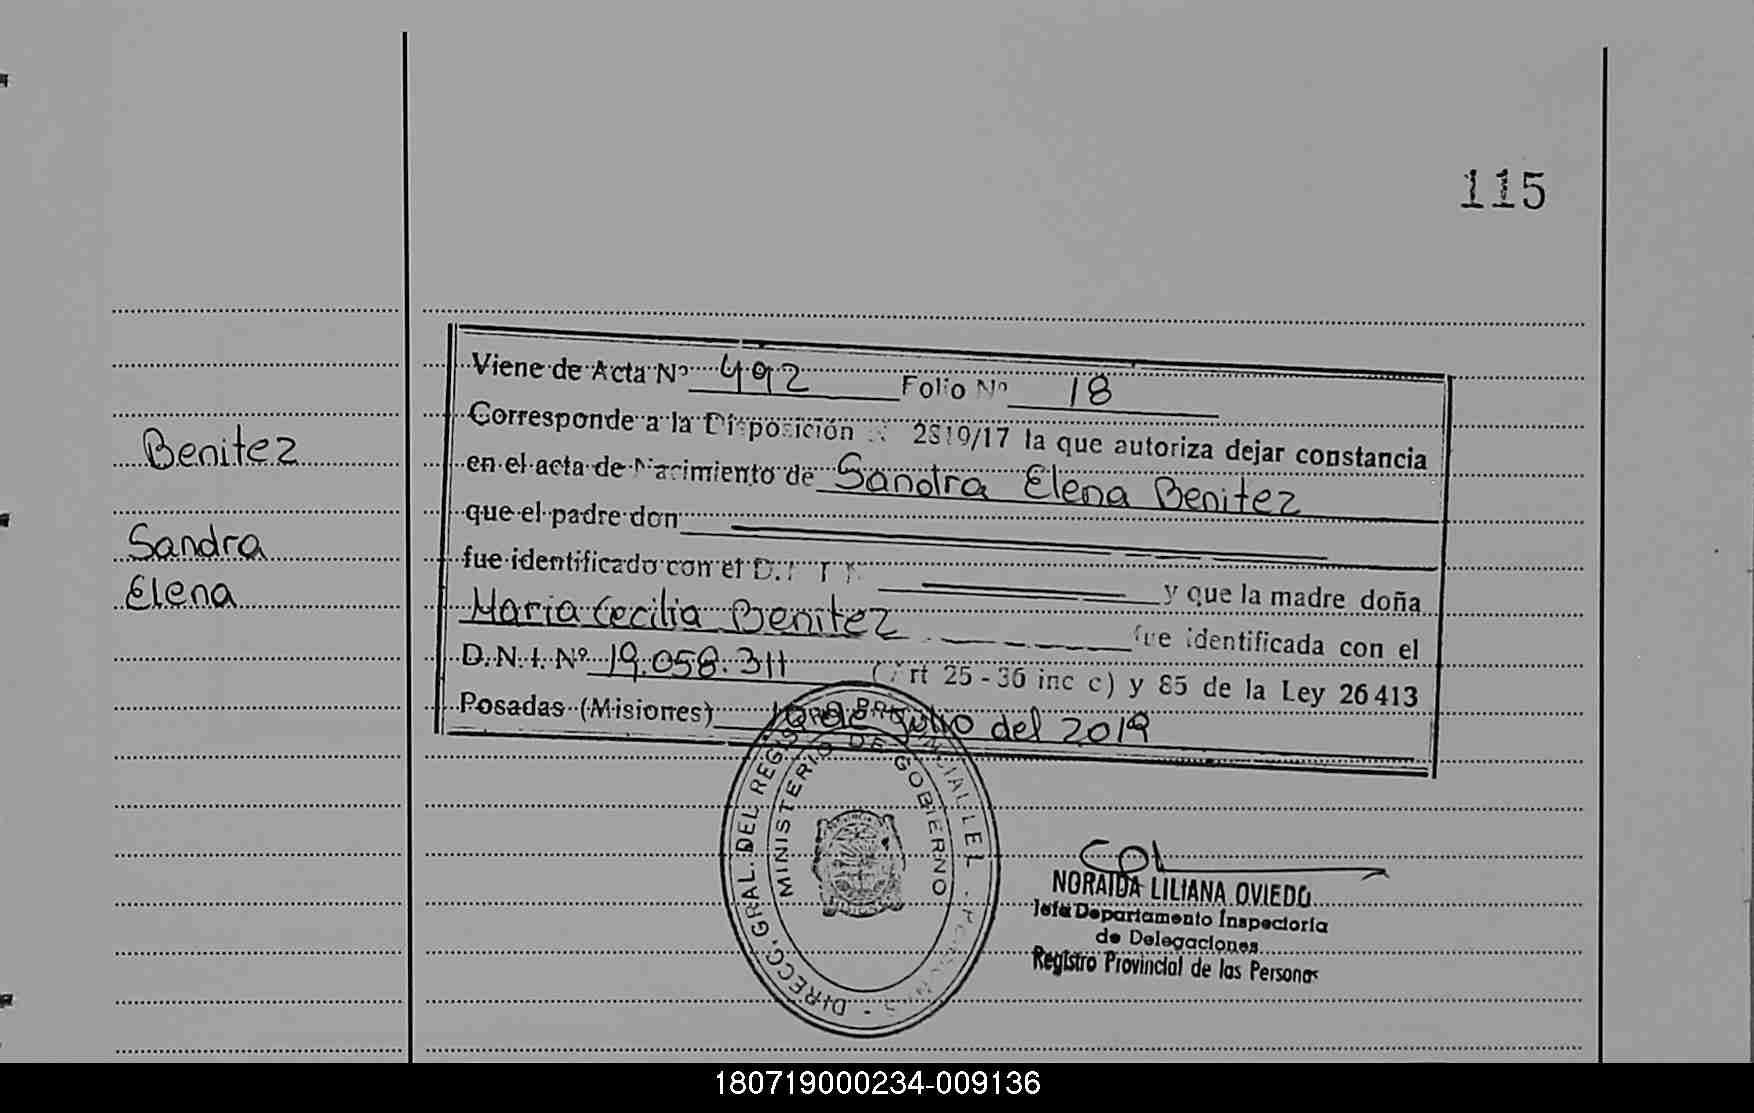 115
Benitez
Sandra
Elena
Viene de Acta Nº 492 Folio Nº 18
Corresponde a la Disposición 2819/17 la que autoriza dejar constancia
en el acta de Nacimiento de Sandra Elena Benitez
que el padre don
fue identificado con el D. y que la madre doña
Maria Cecilia Benitez fue identificada con el
D.N.I. Nº 19.058.311 (Art 25 - 36 inc c) y 85 de la Ley 26 413
Posadas (Misiones) de Julio del 2019
DIRECC. GRAL. DEL REGISTRO PROVINCIAL DE
MINISTERIO DE GOBIERNO
NORAIDA LILIANA OVIEDO
Jefa Departamento Inspectoria
de Delegaciones
Registro Provincial de las Personas
180719000234-009136